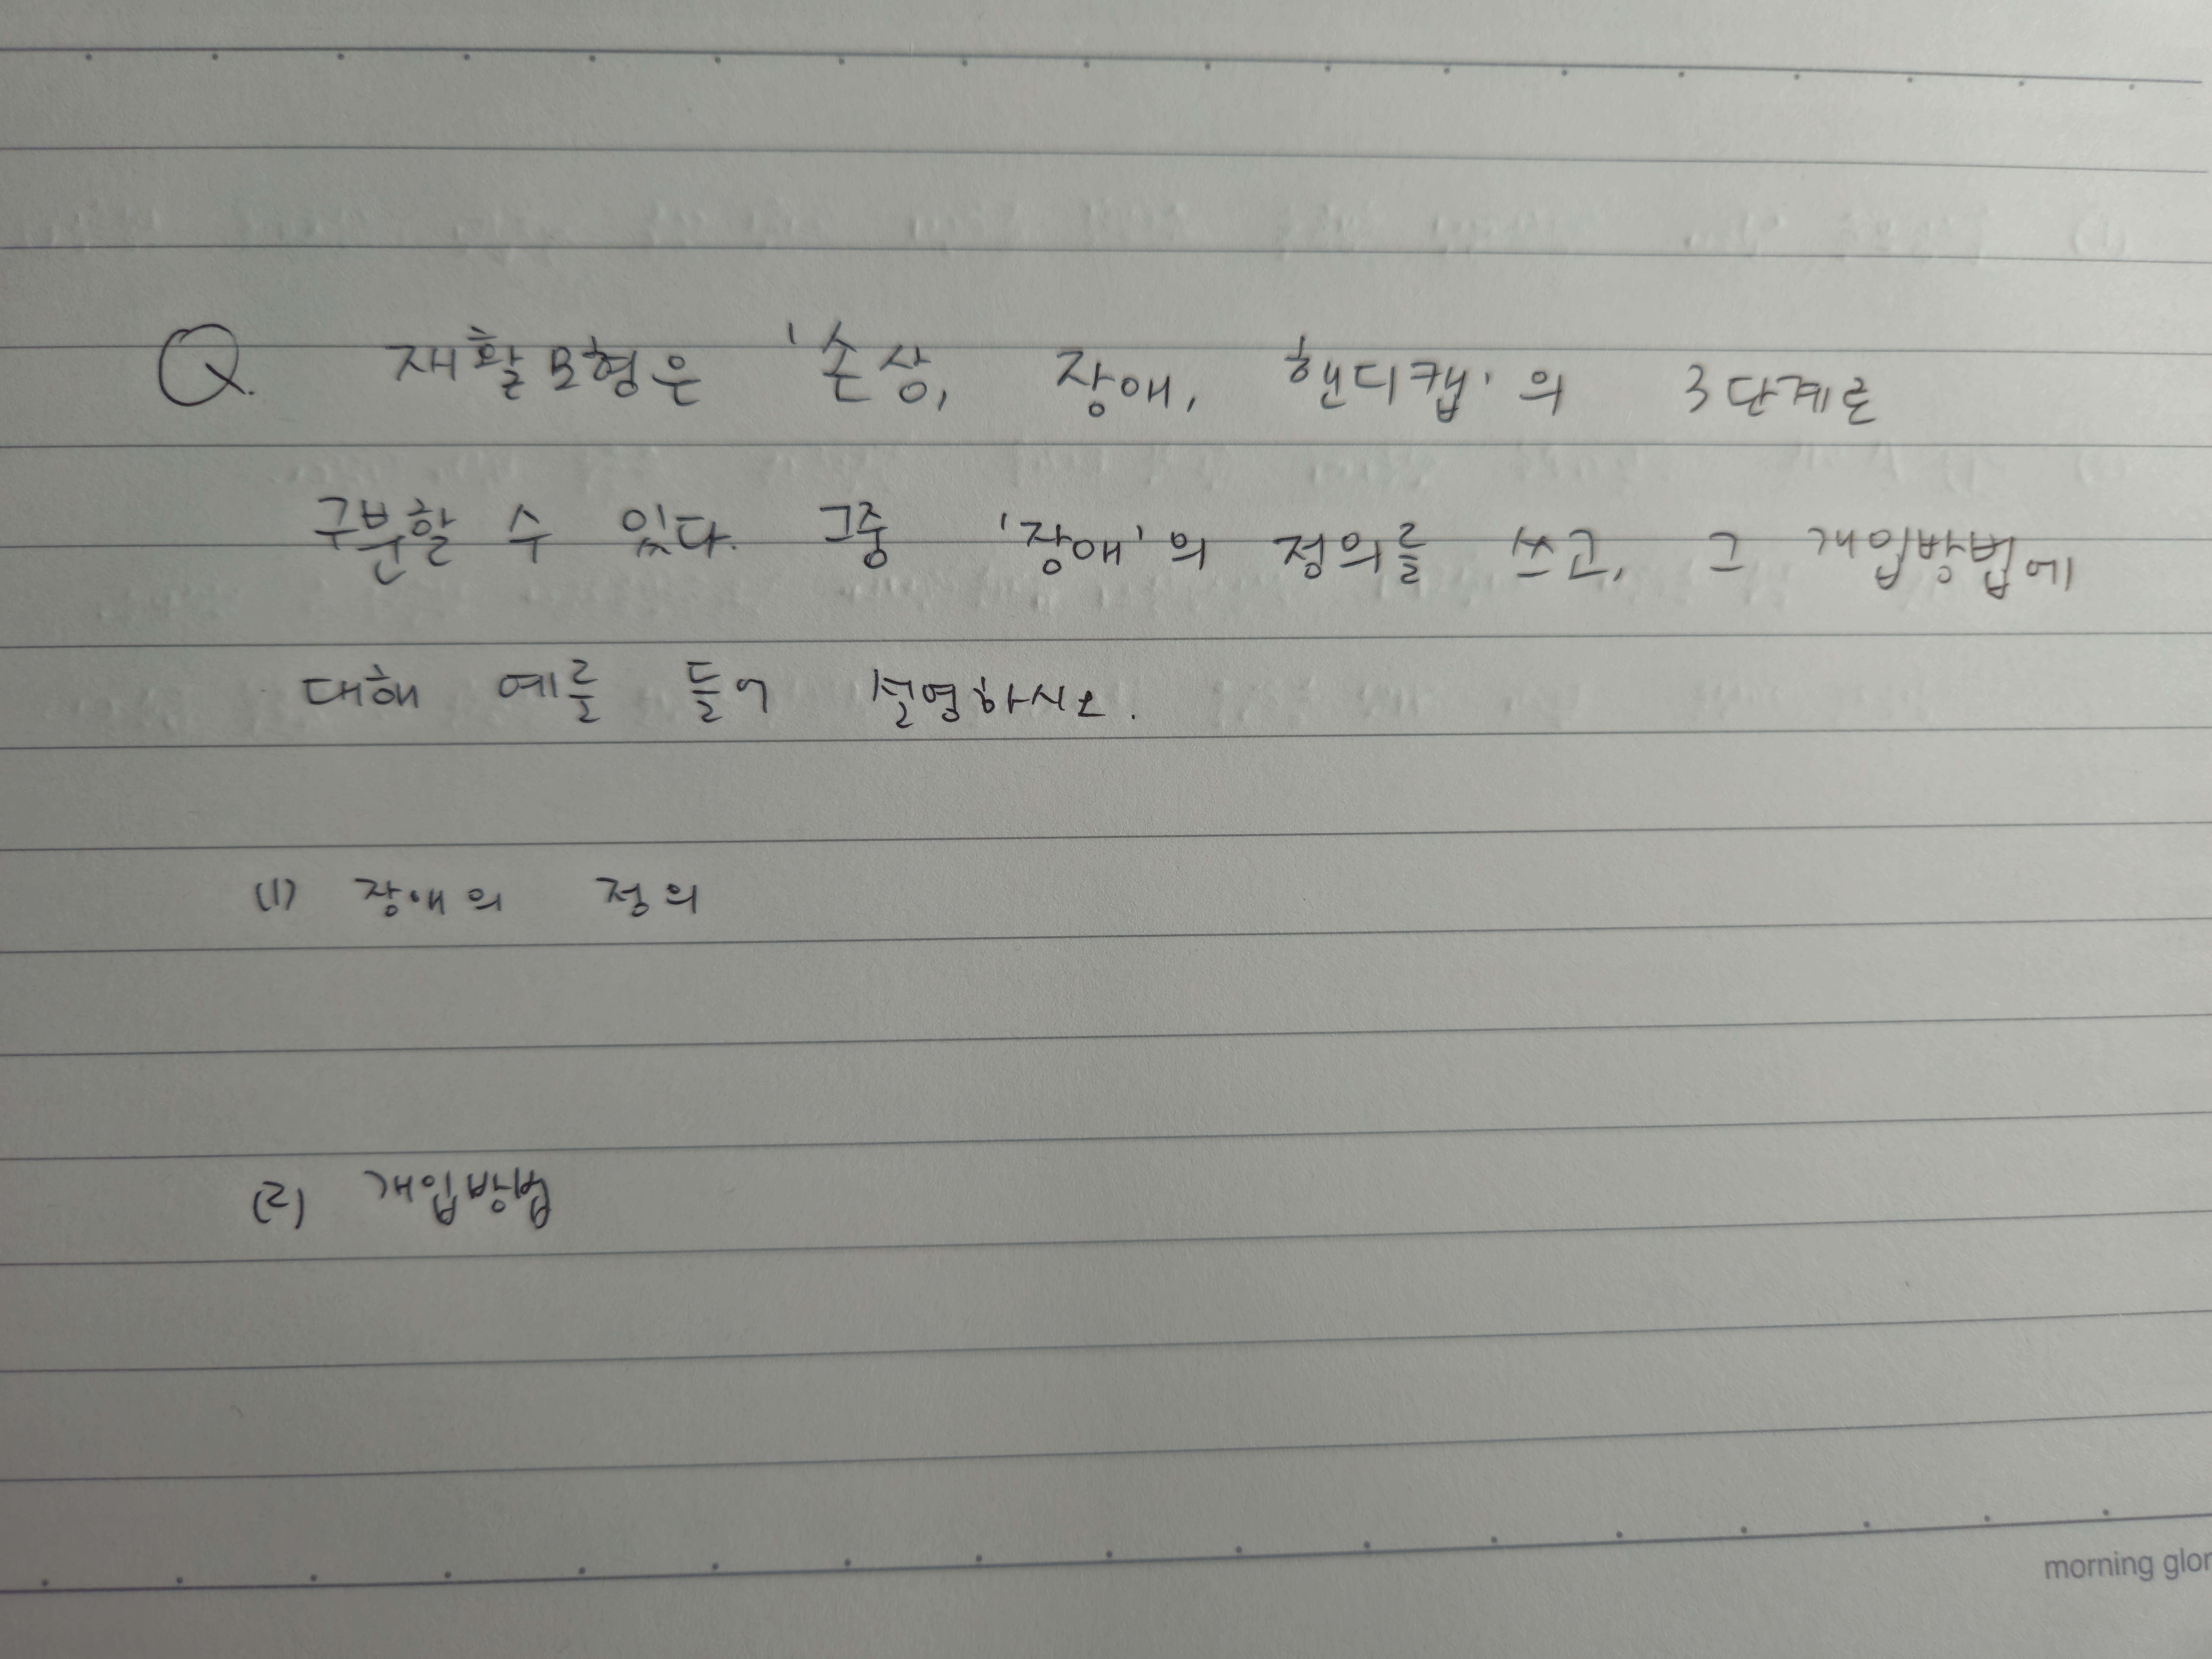 Q. 재활모형은 '손상, 장애, 핸디캡'의 3단계로
구분할 수 있다. 그중 '장애'의 정의를 쓰고, 그 개입방법에
대해 예를 들어 설명하시오.
(1) 장애의 정의
(2) 개입방법
morning glor